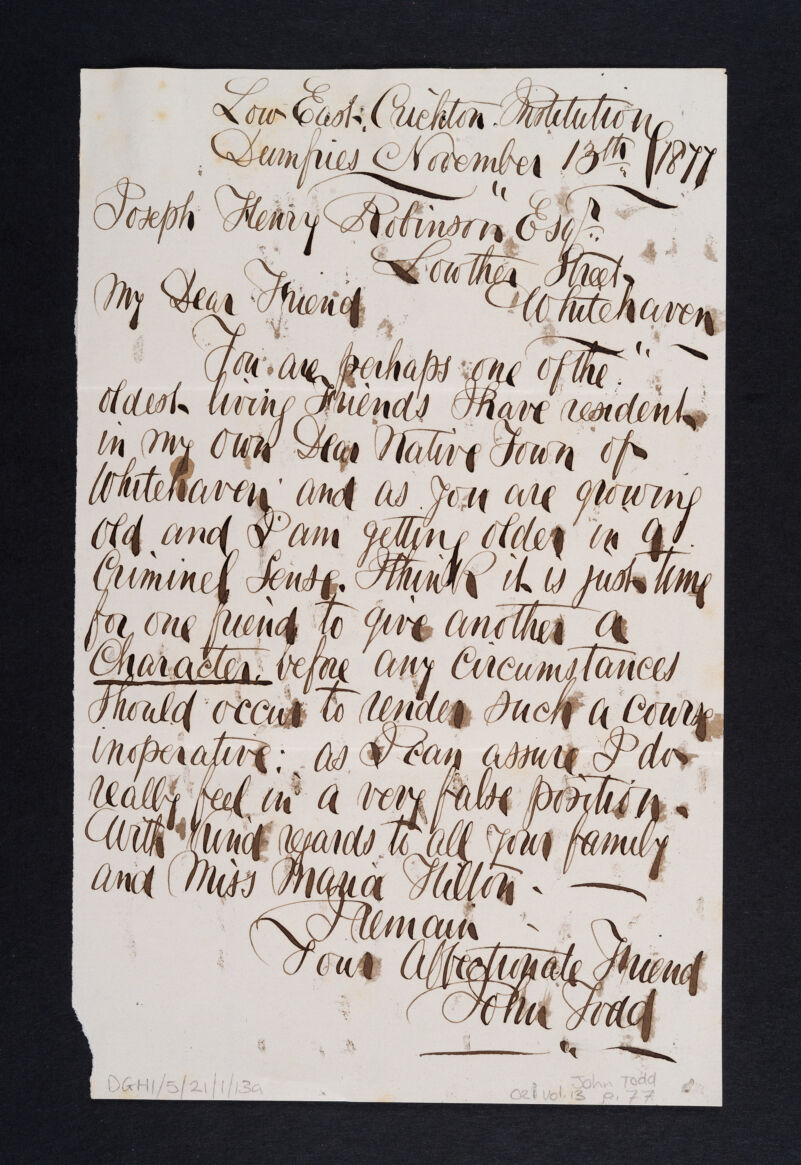 Low East. Crichton. Institution
Dumfries November 13th. 1877
"
Joseph Henry Robinson Esqr.
Lowther Street,
Whitehaven
My Dear Friend
"
You are perhaps one of the
oldest living Friends I have resident
in my own Dear Native Town of
Whitehaven and as you are growing
old and I am getting older in a
Criminel Sense. I think it is just time
for one friend to give another a
Character, before any circumstances
should occur to render such a course
inoperative: as I can assure I do
really feel in a very false position.
With kind regards to all your family
and Miss Maria Hilton. —
I remain
Your Affectionate Friend
John Todd
"
DGH1/5/21/1/13a
John Todd
CRI vol. 13 p. 77